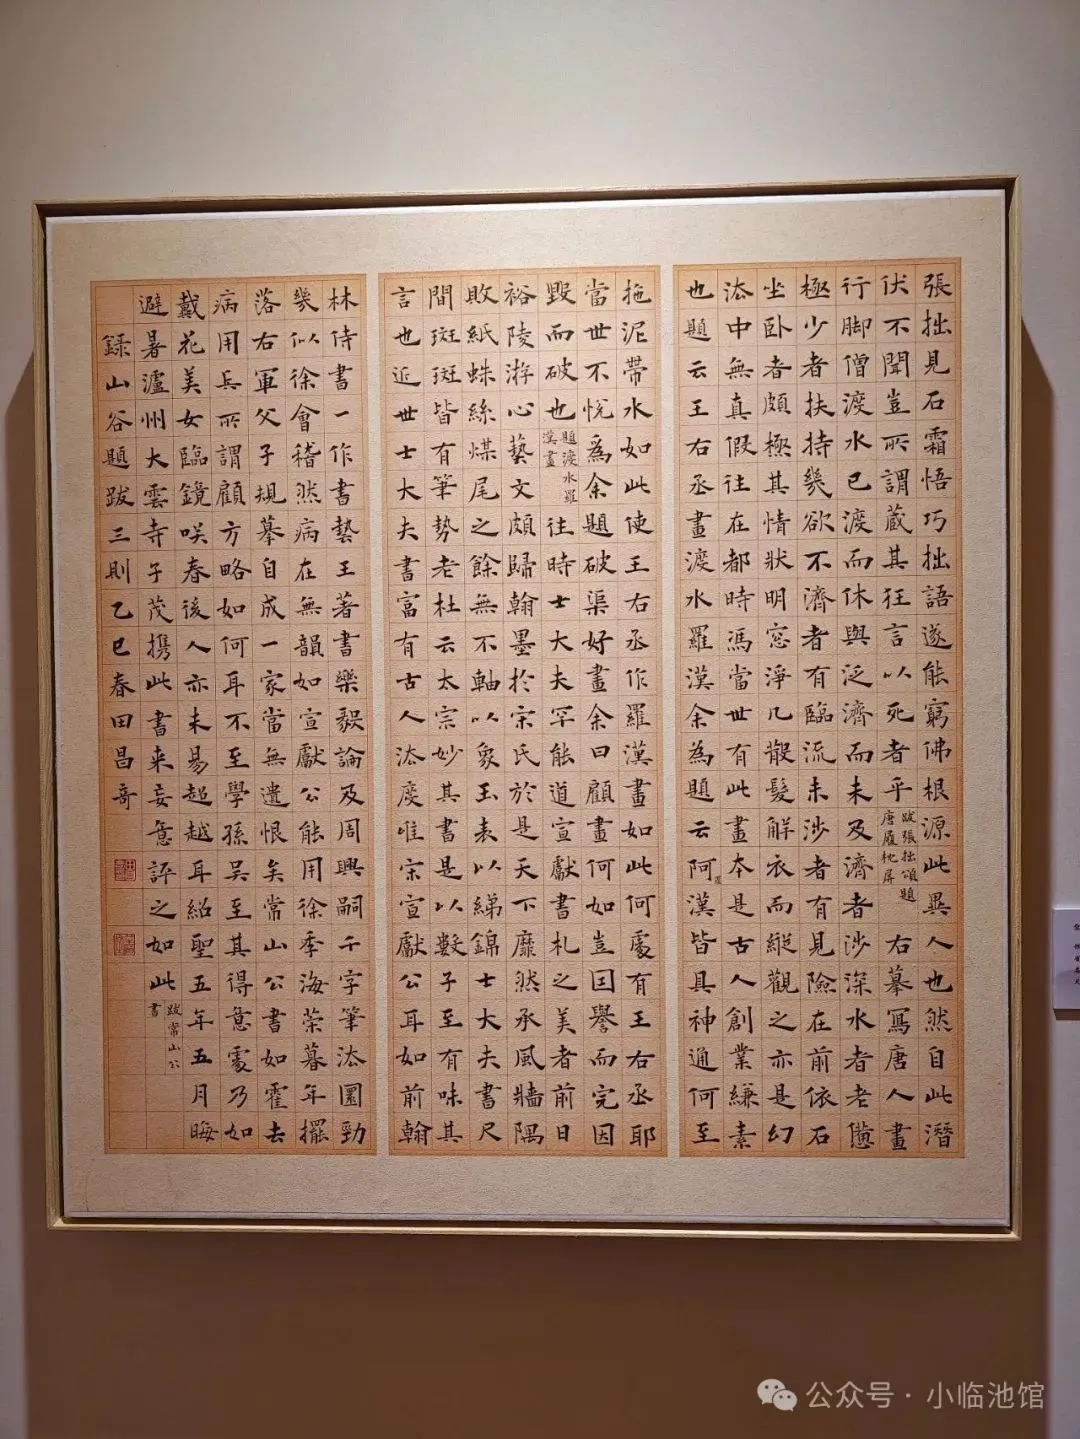 張拙見石霜悟巧拙語遂能窮佛根源此異人也然自此潛
伏不聞豈所謂藏其狂言以死者乎跋張拙頌題唐履枕屏右摹寫唐人畫
行脚僧渡水已渡而休與泛濟而未及濟者涉深水者老憊
極少者扶持幾欲不濟者有臨流未涉者有見險在前依石
坐卧者頗極其情狀明窓淨几散髮解衣而縱觀之亦是幻
法中無真假往在都時馮當世有此畫本是古人創業縑素
也題云王右丞畫渡水羅漢余為題云阿羅漢皆具神通何至
拖泥帶水如此使王右丞作羅漢畫如此何處有王右丞耶
當世不悅爲余題破渠好畫余曰顧畫何如豈因譽而完因
毀而破也題渡水羅漢畫往時士大夫罕能道宣獻書札之美者前日
裕陵游心藝文頗歸翰墨於宋氏於是天下靡然承風牆隅
敗紙蛛絲煤尾之餘無不軸以象玉表以綈錦士大夫書尺
間斑斑皆有筆勢老杜云太宗妙其書是以數子至有味其
言也近世士大夫書富有古人法度唯宋宣獻公耳如前翰
林侍書一作書藝王著書樂毅論及周興嗣千字筆法圜勁
幾似徐會稽然病在無韻如宣獻公能用徐季海策暮年擺
落右軍父子規摹自成一家當無遺恨矣常山公書如霍去
病用兵所謂顧方略如何耳不至學孫吳至其得意處乃如
戴花美女臨鏡咲春後人亦未易超越耳紹聖五年五月晦
避暑瀘州大雲寺子茂携此書来妄意評之如此跋常山公書
錄山谷題跋三則乙巳春田昌奇
公众号·小临池馆